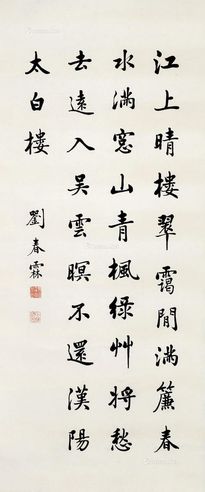 江上晴樓翠靄間滿簾春
水滿窓山青楓綠艸將愁
去遠入吳雲暝不還漢陽
太白樓
劉春霖